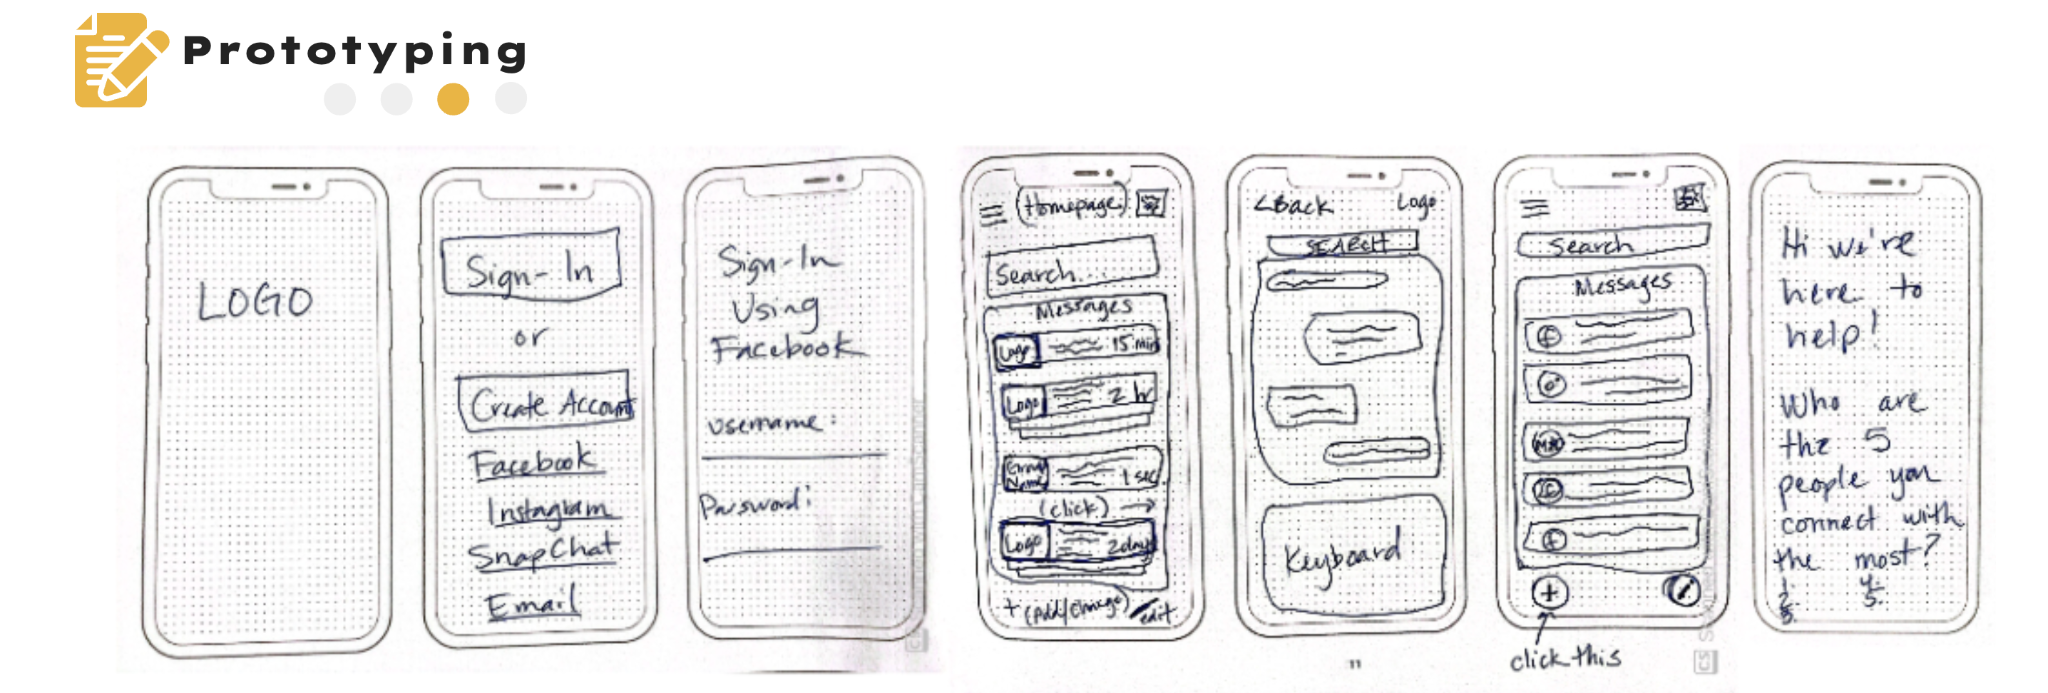 Prototyping
LOGO
Sign-In
or
Create Account
Facebook
Instagram
SnapChat
Email
Sign-In
Using
Facebook
username:
Password:
(Homepage)
Search...
Messages
Logo 15 min
Logo 2 hr
Group Name 1 sec
(click) →
Logo 2day
+ (Add/Change) edit
<Back Logo
SEARCH
Keyboard
11
Search
Messages
f
f
+
click this
CS
Hi we're
here to
help!
Who are
the 5
people you
connect with
the most?
1. 4.
2. 5.
3.